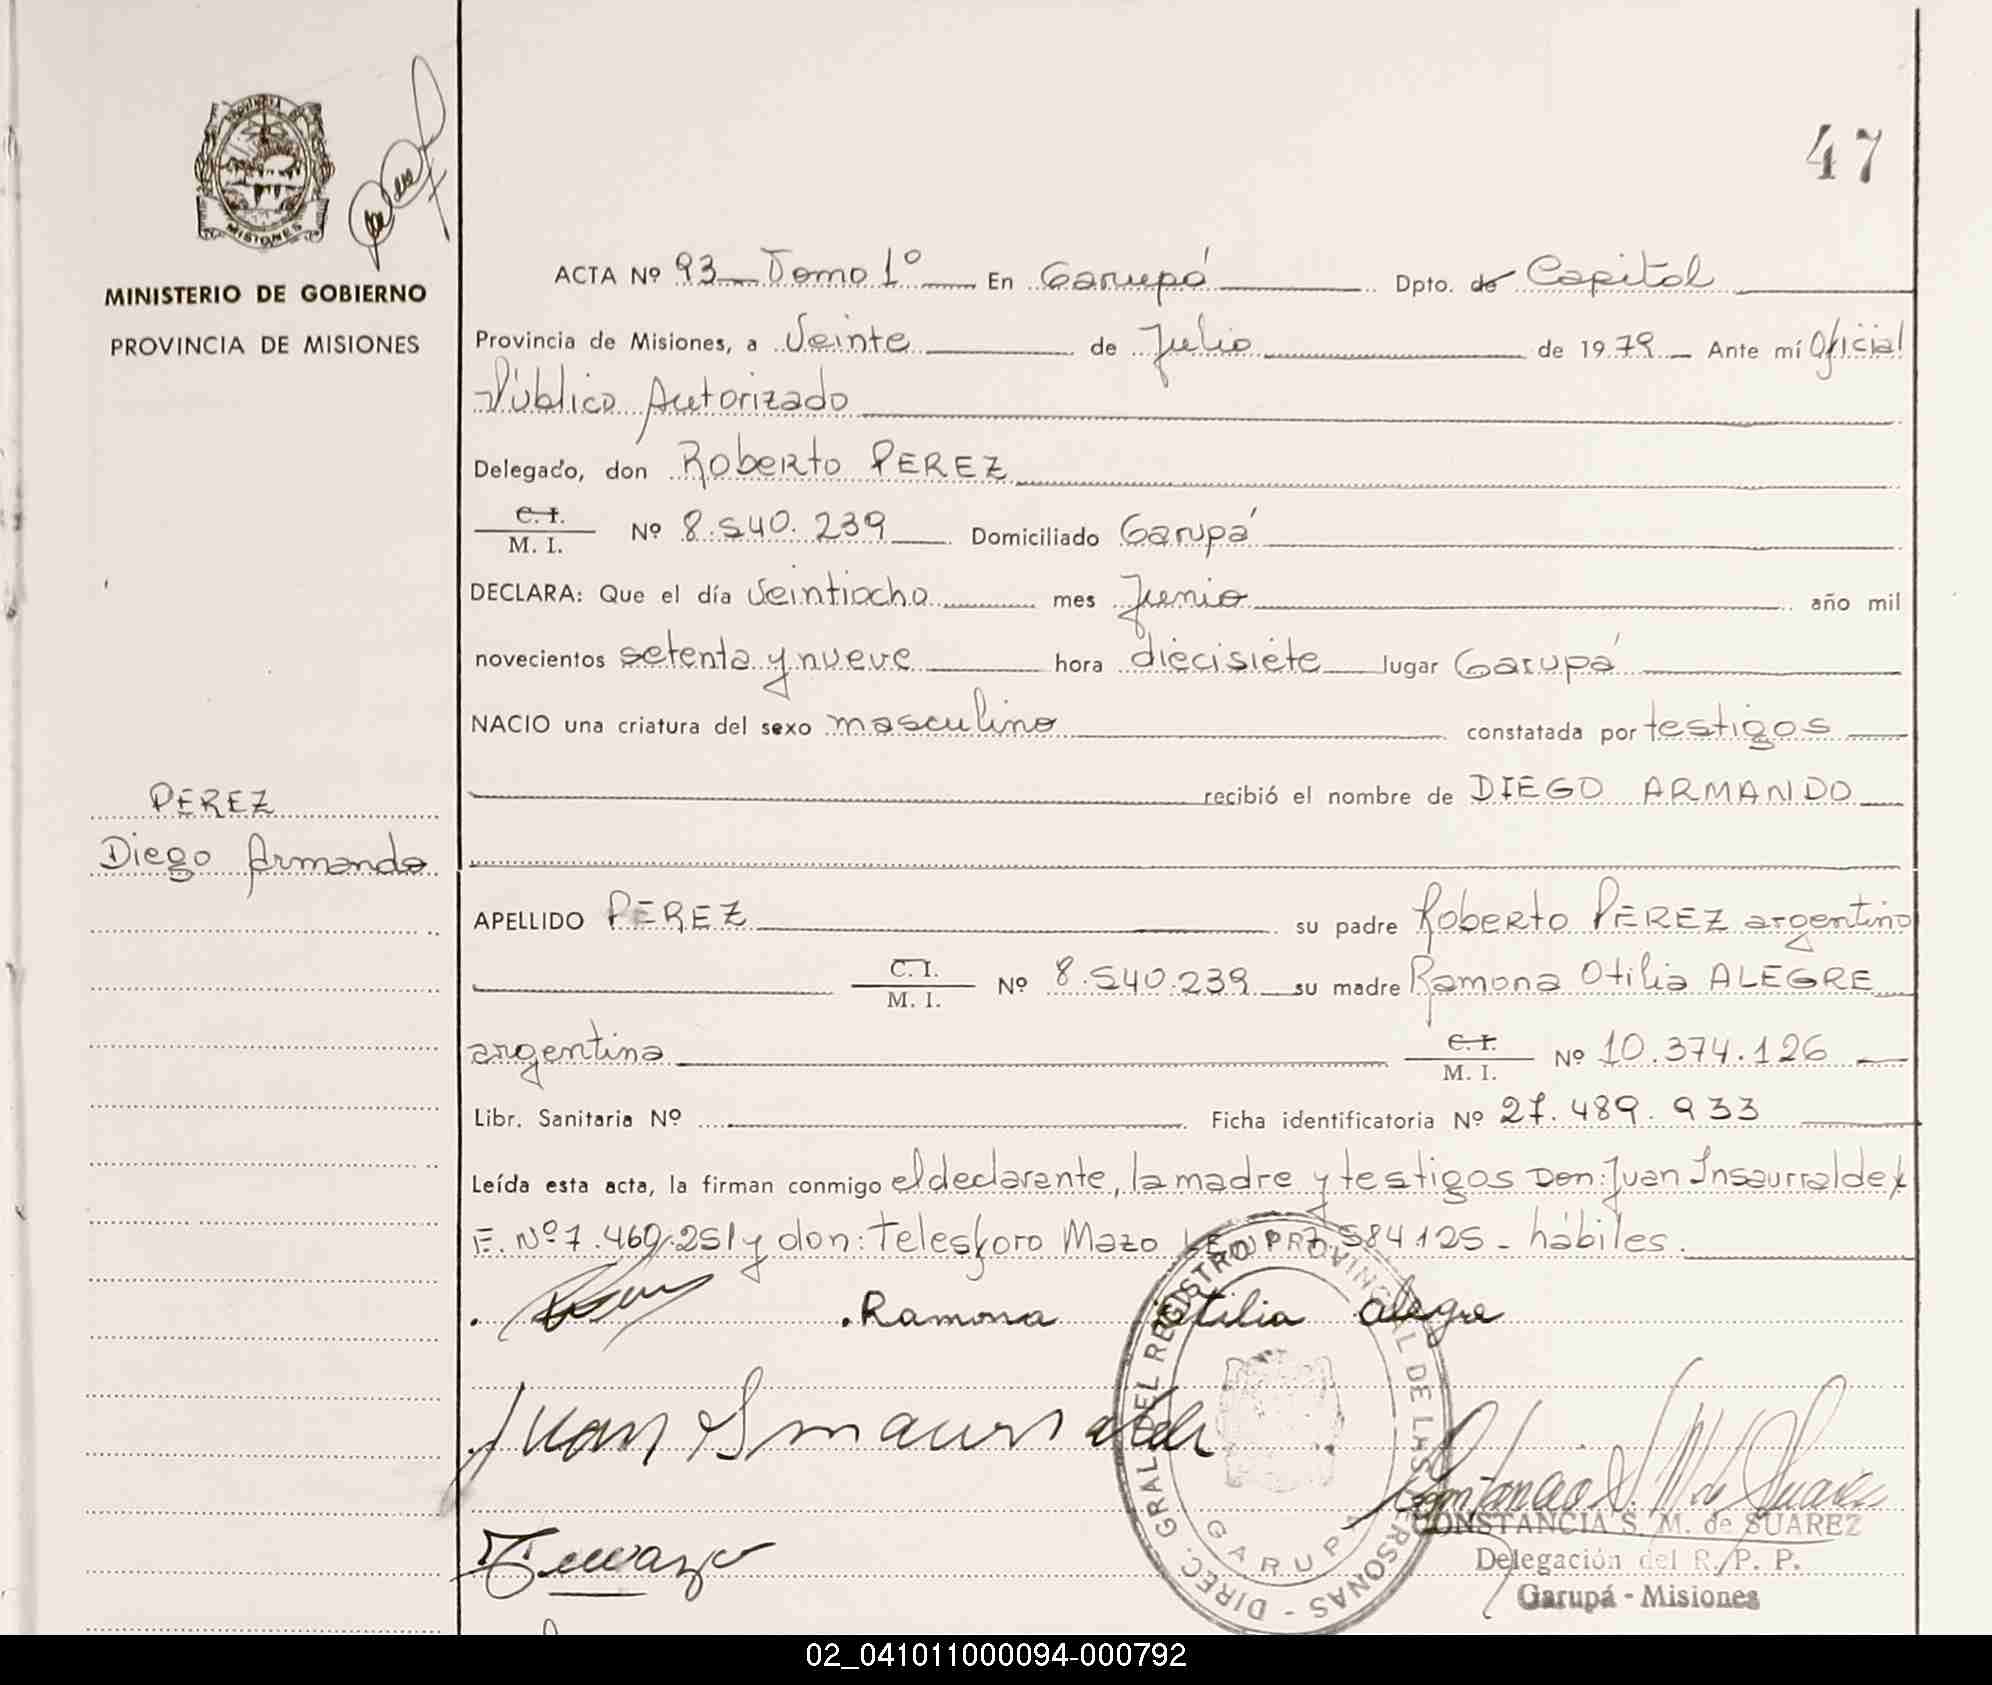 47
PROVINCIA
MISIONES
MINISTERIO DE GOBIERNO
PROVINCIA DE MISIONES
ACTA Nº 93 Tomo 1º En Garupá Dpto. de Capital
Provincia de Misiones, a Veinte de Julio de 1979 Ante mí Oficial
Público Autorizado
Delegado, don Roberto PEREZ
C. I.
M. I. Nº 8.540.239 Domiciliado Garupá
DECLARA: Que el día Veintiocho mes Junio año mil
novecientos setenta y nueve hora diecisiete lugar Garupá
NACIO una criatura del sexo masculino constatada por testigos
recibió el nombre de DIEGO ARMANDO
PEREZ
Diego Armando
APELLIDO PEREZ su padre Roberto PEREZ argentino
C. I.
M. I. Nº 8.540.239 su madre Ramona Otilia ALEGRE
argentina C. I.
M. I. Nº 10.374.126
Libr. Sanitaria Nº Ficha identificatoria Nº 27.489.933
Leída esta acta, la firman conmigo el declarante, la madre y testigos Don: Juan Insaurralde L
E. Nº 7.469.251 y don: Telesforo Mazo LE Nº 7.584125 - hábiles.
Ramona Otilia Alegre
Juan Insaurralde
DIREC. GRAL. DEL REGISTRO PROVINCIAL DE LAS PERSONAS -
GARUPA
CONSTANCIA S. M. de SUAREZ
Delegación del R. P. P.
Garupá - Misiones
02_041011000094-000792